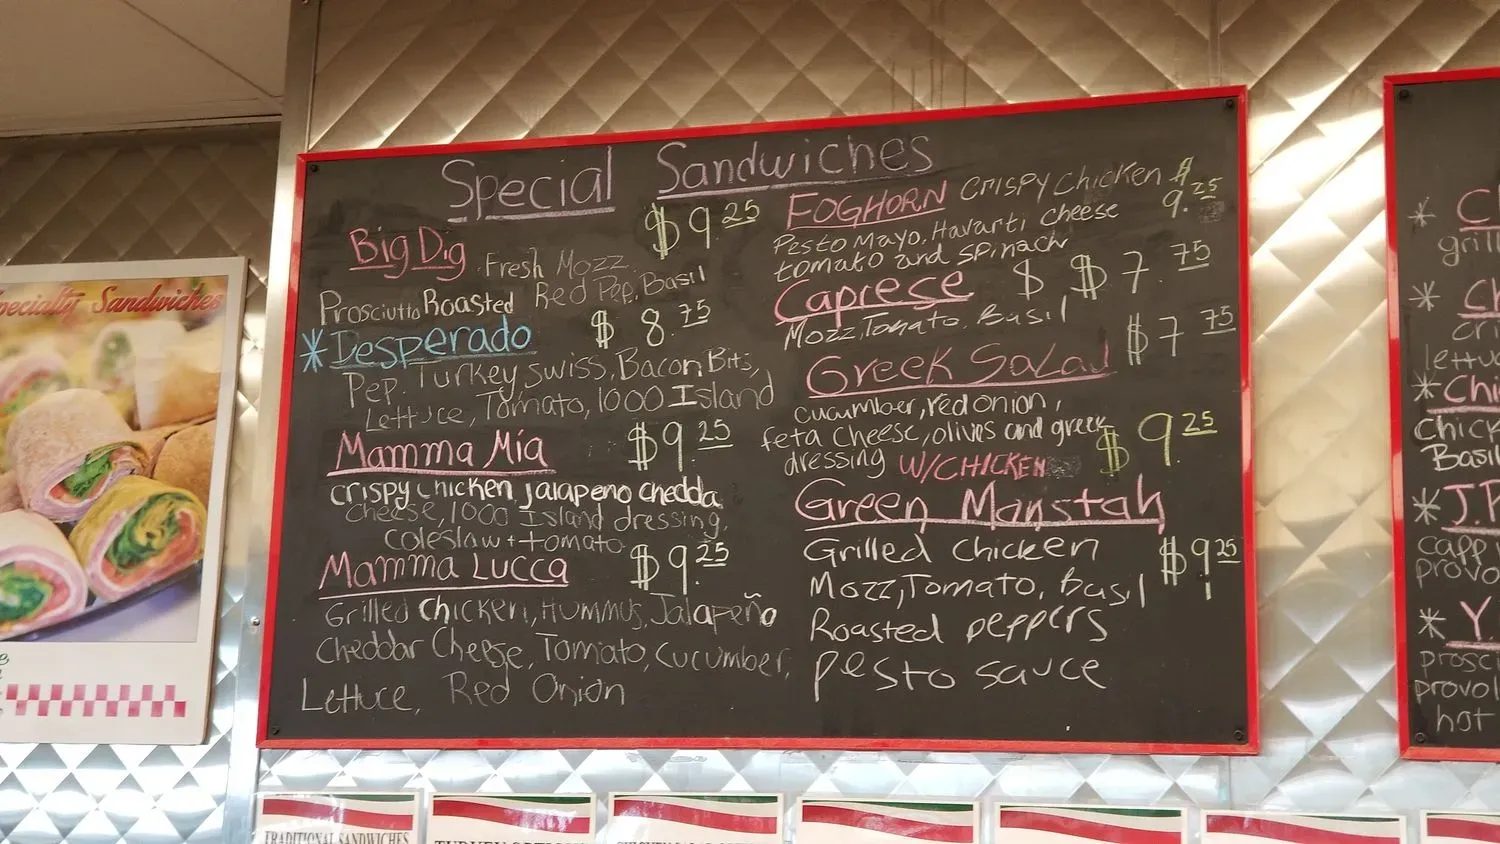 Specialty Sandwiches
Special Sandwiches
Big Dig $9.25
Fresh Mozz.
Prosciutto Roasted Red Pep, Basil
*Desperado $8.75
Pep. Turkey, swiss, Bacon Bits,
Lettuce, Tomato, 1000 Island
Mamma Mia $9.25
crispy chicken jalapeno chedda
cheese, 1000 Island dressing,
coleslaw + tomato
Mamma Lucca $9.25
Grilled chicken, Hummus, Jalapeño
Cheddar Cheese, Tomato, cucumber,
Lettuce, Red Onion
FOGHORN crispy chicken $9.25
Pesto Mayo, Havarti cheese
tomato and spinach
Caprese $ $7.75
Mozz, Tomato, Basil
Greek Salad $7.75
cucumber, red onion,
feta cheese, olives and greek
dressing W/CHICKEN $9.25
Green Manstah
Grilled chicken $9.25
Mozz, Tomato, Basil
Roasted peppers
pesto sauce
*
*
*
chick
Basil
* J.P
provo
* Y.
prosc
provol
hot
TRADITIONAL SANDWICHES